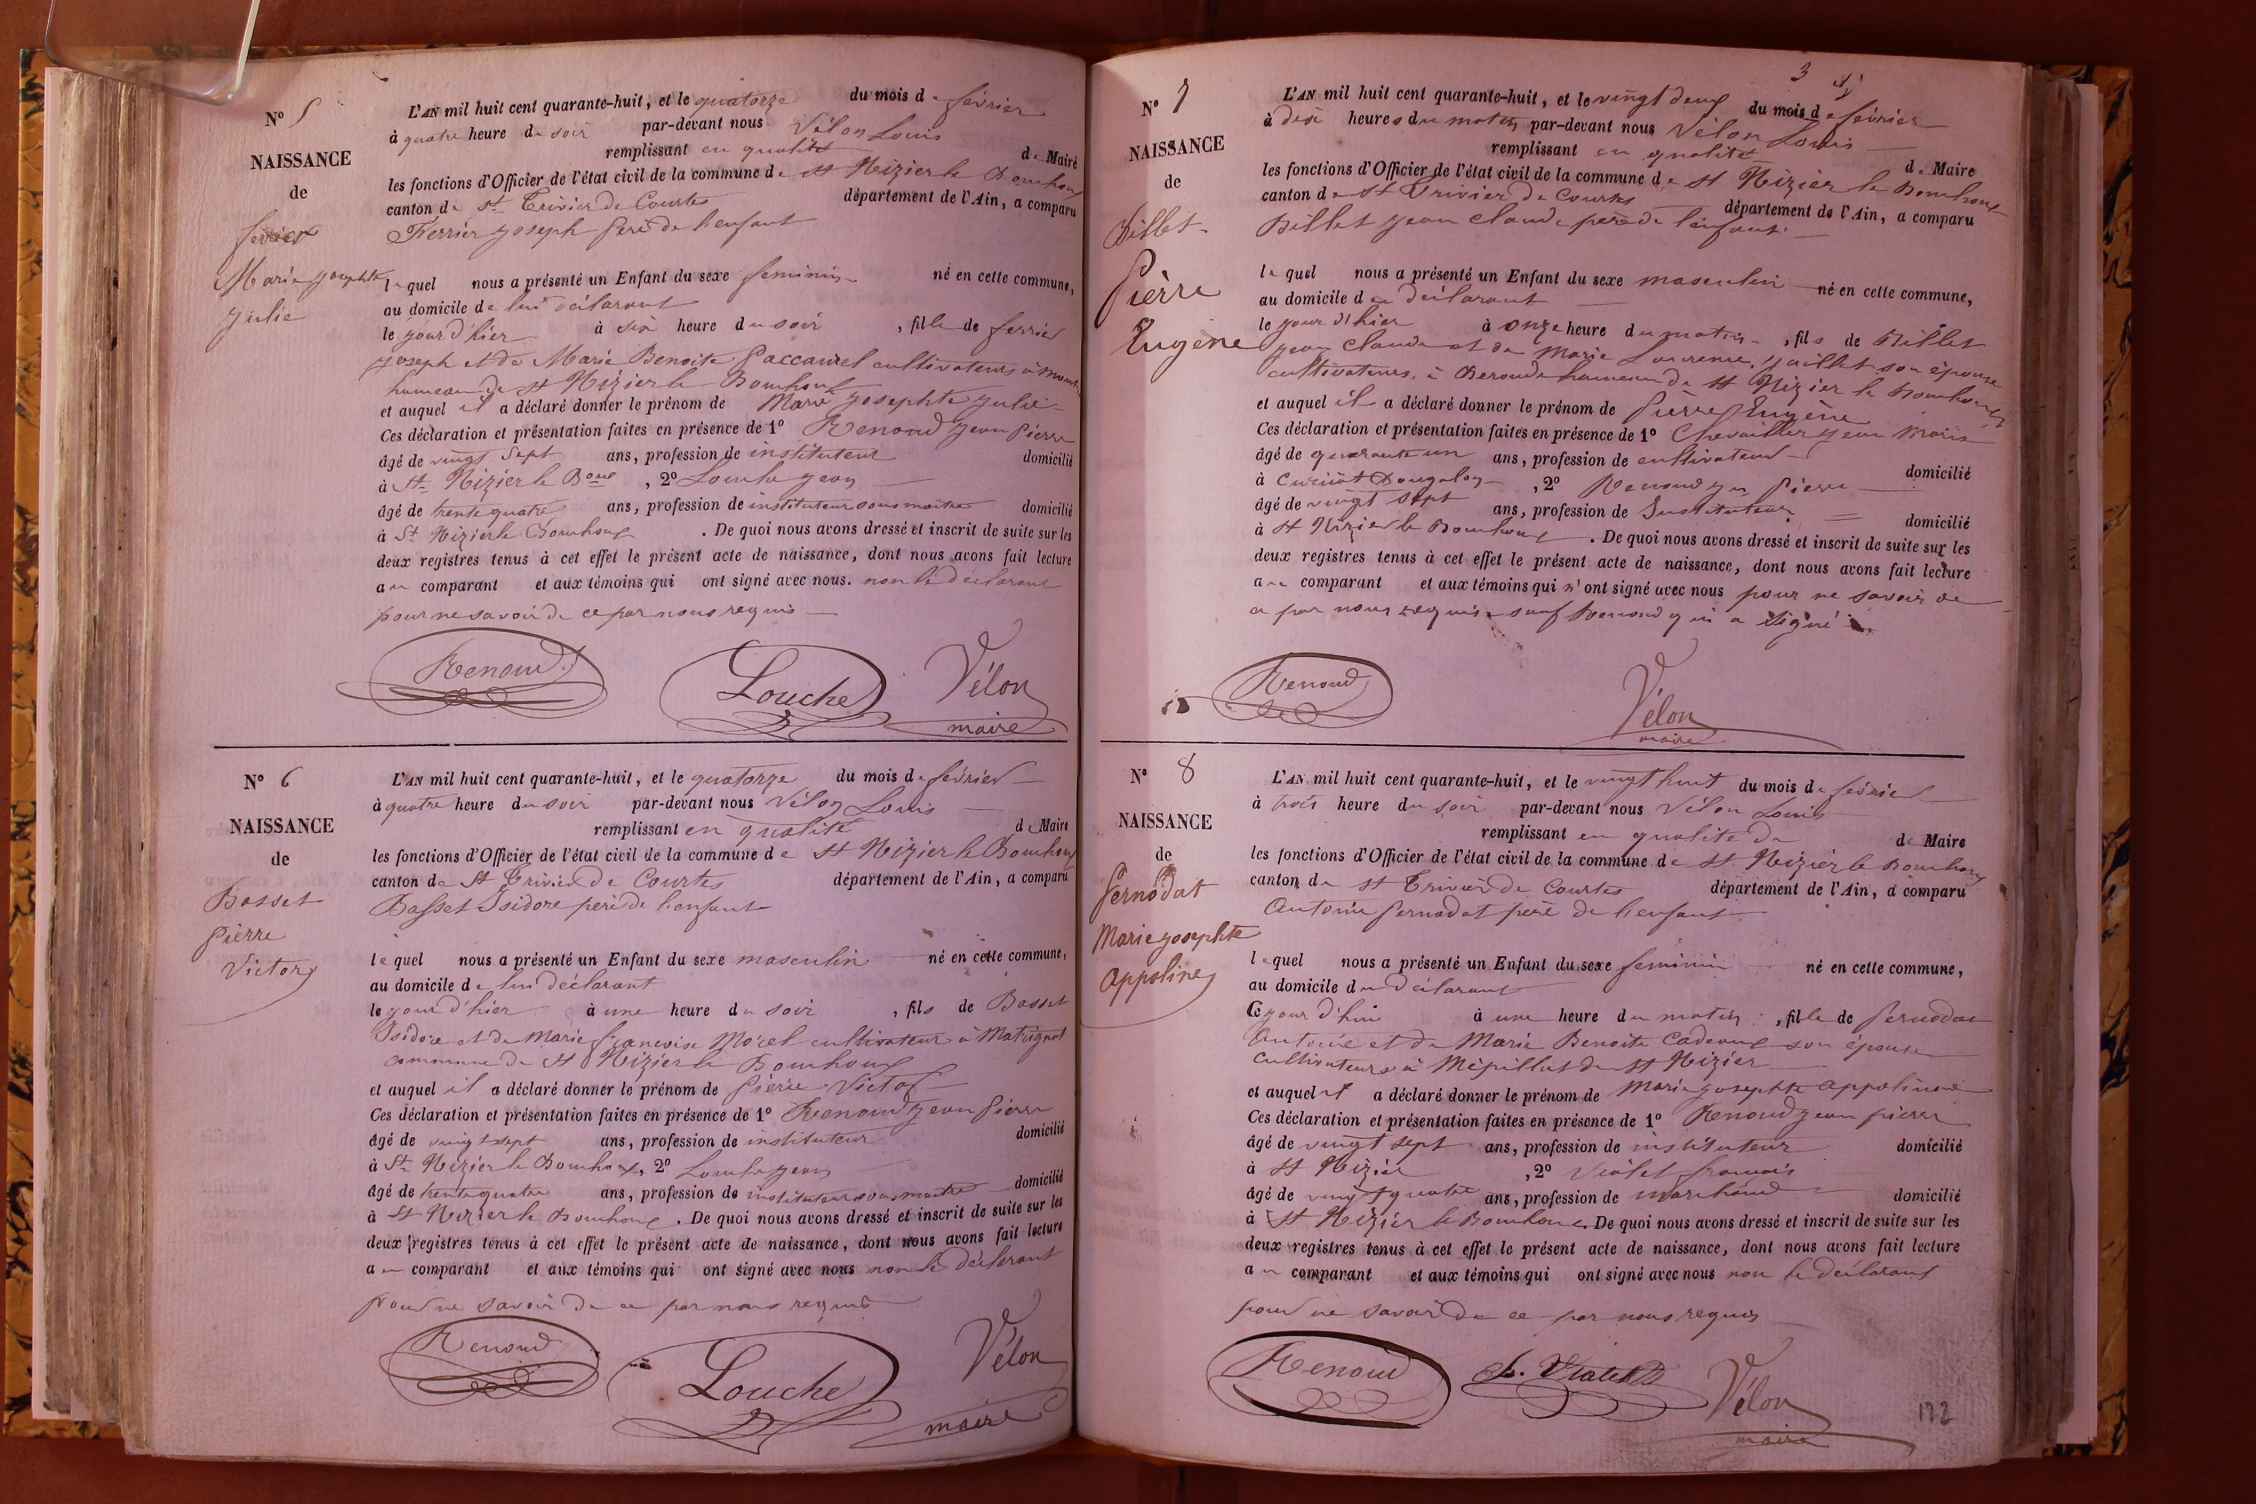 N° 5
NAISSANCE
de
ferrier
Marie josephte
julie
L'AN mil huit cent quarante-huit, et le quatorze du mois de février
à quatre heure du soir par-devant nous Vélon Louis
remplissant en qualité de Maire
les fonctions d'Officier de l'état civil de la commune de St Nizier le Bouchoux
canton de St Trivier de Courtes département de l'Ain, a comparu
Ferrier joseph père de l'enfant
lequel nous a présenté un Enfant du sexe feminin né en cette commune,
au domicile de lui déclarant
le jour d'hier à six heure du soir, fille de ferrier
joseph et de Marie Benoite cultivateurs à
hameau de St Nizier le Bouchoux
et auquel il a déclaré donner le prénom de Marie josephte julie
Ces déclaration et présentation faites en présence de 1° Renoud jean pierre
âgé de vingt sept ans, profession de instituteur domicilié
à St Nizier le Boux, 2° Louche jean
âgé de trente quatre ans, profession de instituteur sous maitre domicilié
à St Nizier le Bouchoux. De quoi nous avons dressé et inscrit de suite sur les
deux registres tenus à cet effet le présent acte de naissance, dont nous avons fait lecture
au comparant et aux témoins qui ont signé avec nous. non le déclarant
pour ne savoir de ce par nous requis
Renoud Louche Vélon
maire
N° 6
NAISSANCE
de
Basset
Pierre
Victor
L'AN mil huit cent quarante-huit, et le quatorze du mois de février
à quatre heure du soir par-devant nous Vélon Louis
remplissant en qualité de Maire
les fonctions d'Officier de l'état civil de la commune de St Nizier le Bouchoux
canton de St Trivier de Courtes département de l'Ain, a comparu
Basset Isidore père de l'enfant
lequel nous a présenté un Enfant du sexe masculin né en cette commune,
au domicile de lui déclarant
le jour d'hier à une heure du soir, fils de Basset
Isidore et de Marie françoise Morel cultivateur à Matignat
commune de St Nizier le Bouchoux
et auquel il a déclaré donner le prénom de Pierre Victor
Ces déclaration et présentation faites en présence de 1° Renoud jean pierre
âgé de vingt sept ans, profession de instituteur domicilié
à St Nizier le Bouchoux, 2° Louche jean
âgé de trente quatre ans, profession de instituteur sous maitre domicilié
à St Nizier le Bouchoux. De quoi nous avons dressé et inscrit de suite sur les
deux registres tenus à cet effet le présent acte de naissance, dont nous avons fait lecture
au comparant et aux témoins qui ont signé avec nous non le déclarant
pour ne savoir de ce par nous requis
Renoud Louche Vélon
maire
3
N° 7
NAISSANCE
de
Billet
Pierre
Eugène
L'AN mil huit cent quarante-huit, et le vingt deux du mois de février
à dix heures du matin par-devant nous Vélon Louis
remplissant en qualité de Maire
les fonctions d'Officier de l'état civil de la commune de St Nizier le Bouchoux
canton de St Trivier de Courtes département de l'Ain, a comparu
Billet jean claude père de l'enfant
lequel nous a présenté un Enfant du sexe masculin né en cette commune,
au domicile du déclarant
le jour d'hier à onze heure du matin, fils de Billet
jean claude et de Marie Laurence jaillet son épouse
cultivateurs à hameau de St Nizier le Bouchoux
et auquel il a déclaré donner le prénom de Pierre Eugène
Ces déclaration et présentation faites en présence de 1° Chevaillier jean Marie
âgé de quarante un ans, profession de cultivateur domicilié
à Curciat Dongalon, 2° Renoud jn Pierre
âgé de vingt sept ans, profession de Instituteur domicilié
à St Nizier le Bouchoux. De quoi nous avons dressé et inscrit de suite sur les
deux registres tenus à cet effet le présent acte de naissance, dont nous avons fait lecture
au comparant et aux témoins qui n'ont signé avec nous pour ne savoir de
ce par nous requis sauf Renoud qui a signé
Renoud Vélon
maire
N° 8
NAISSANCE
de
Pernodat
Marie josephte
Appoline
L'AN mil huit cent quarante-huit, et le vingt huit du mois de février
à trois heure du soir par-devant nous Vélon Louis
remplissant en qualité de de Maire
les fonctions d'Officier de l'état civil de la commune de St Nizier le Bouchoux
canton de St Trivier de Courtes département de l'Ain, a comparu
Antoine Pernodat père de l'enfant
lequel nous a présenté un Enfant du sexe feminin né en cette commune,
au domicile du déclarant
Ce jour d'hui à une heure du matin, fille de Pernodat
Antoine et de Marie Benoite Cadeoux son épouse
cultivateurs à Mépillat de St Nizier
et auquel il a déclaré donner le prénom de Marie josephte
Ces déclaration et présentation faites en présence de 1° Renoud jean pierre
âgé de vingt sept ans, profession de instituteur domicilié
à St Nizier, 2° Violet françois
âgé de vingt quatre ans, profession de marchand domicilié
à St Nizier le Bouchoux. De quoi nous avons dressé et inscrit de suite sur les
deux registres tenus à cet effet le présent acte de naissance, dont nous avons fait lecture
au comparant et aux témoins qui ont signé avec nous non le déclarant
pour ne savoir de ce par nous requis
Renoud Vélon
maire
172